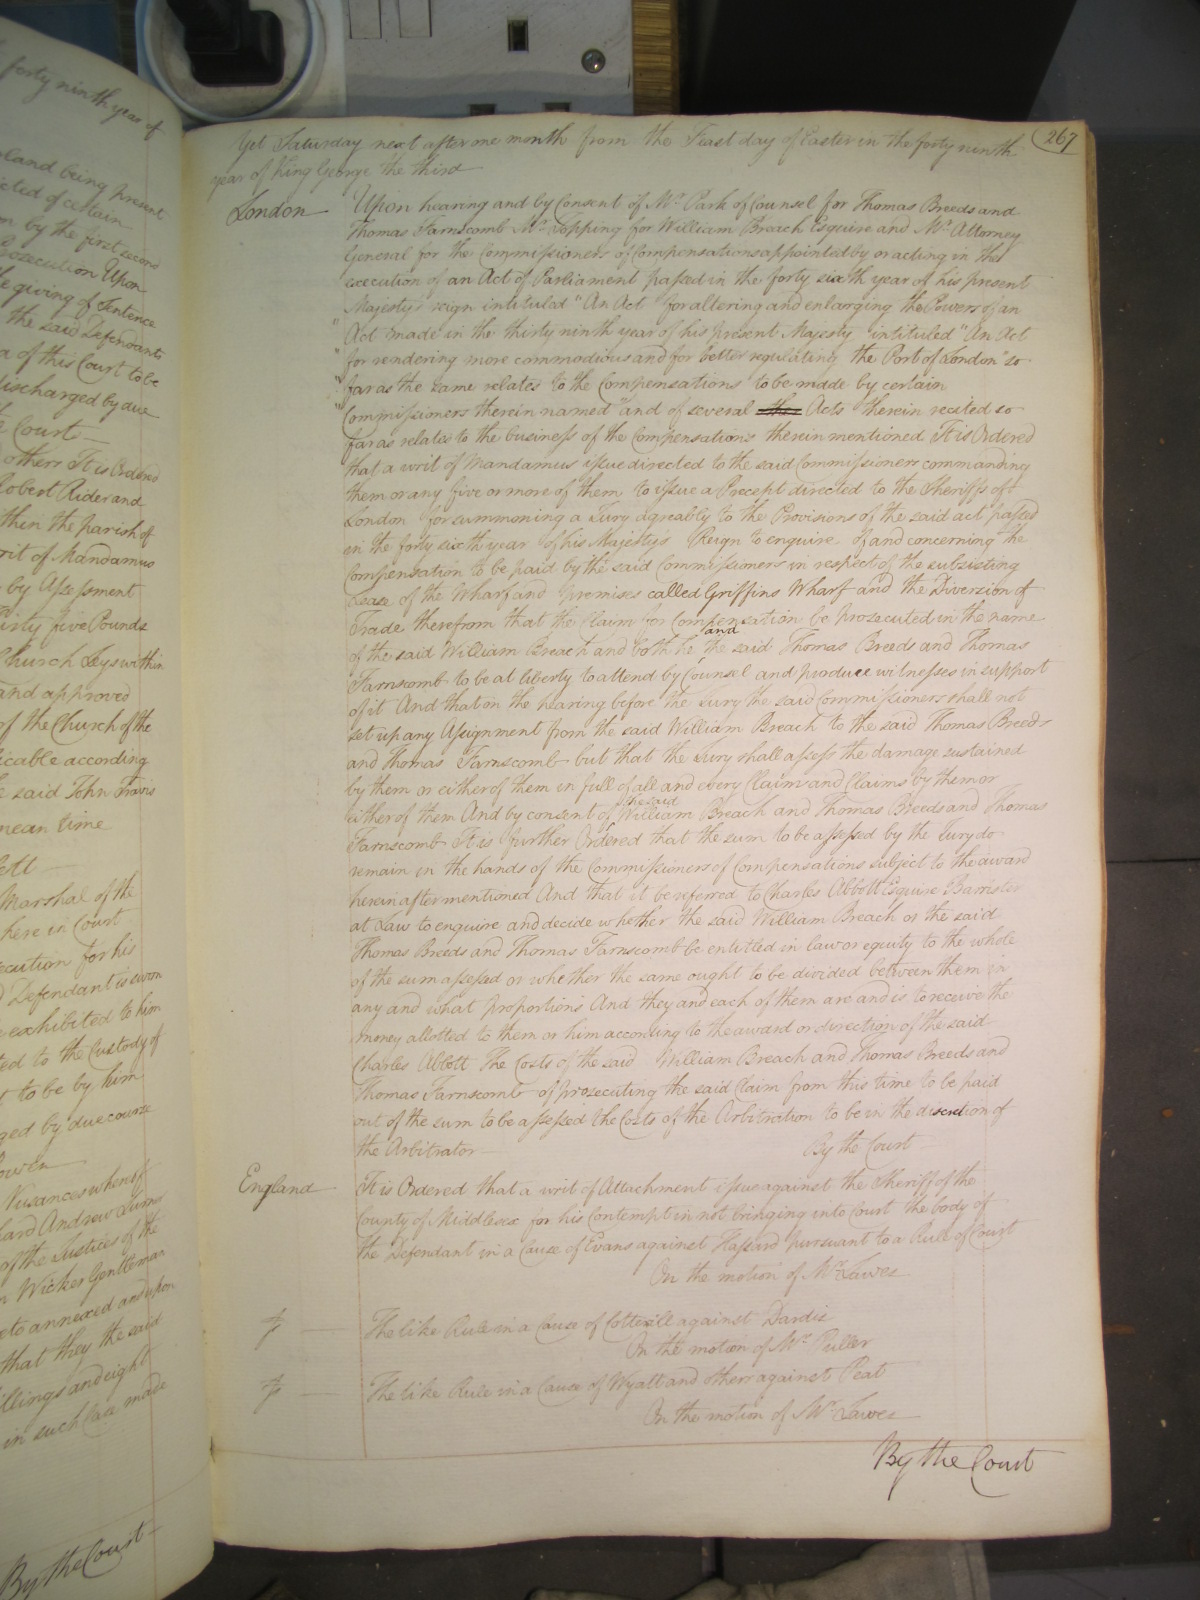 forty ninth year of
land being present
icted of certain
n by the first second
Prosecution Upon
he giving of Sentence
the said Defendants
a of this Court to be
discharged by due
Court
others It is Ordered
Robert Rider and
thin the parish of
rit of Mandamus
by Assessment
five Pounds
Church Leys within
and approved
of the Church of the
licable according
said John Travis
mean time
Marshal of the
here in Court
ecution for his
Defendant is
exhibited to him
ted to the Custody of
to be by him
ged by due course
Nusances whereof
hard Andrew
of the Justices of the
Wicker Gentleman
to annexed and upon
that they the said
illings and eight
in such Case made
By the Court
267
Yet Saturday next after one month from the Feast day of Easter in the forty ninth
year of King George the third
London Upon hearing and by Consent of Mr. Park of Counsel for Thomas Breeds and
Thomas Farnscomb Mr. Topping for William Breach Esquire and Mr. Attorney
General for the Commissioners of Compensations appointed by or acting in the
execution of an Act of Parliament passed in the forty sixth year of his present
Majesty's reign intituled "An Act for altering and enlarging the Powers of an
"Act made in the thirty ninth year of his present Majesty intituled "An Act
"for rendering more commodious and for better regulating the Port of London" so
"far as the same relates to the Compensations to be made by certain
"Commissioners therein named" and of several the Acts therein recited so
far as relates to the business of the Compensations therein mentioned It is Ordered
that a writ of Mandamus issue directed to the said Commissioners commanding
them or any five or more of them to issue a Precept directed to the Sheriffs of
London for summoning a Jury agreably to the Provisions of the said act passed
in the forty sixth year of his Majestys Reign to enquire of and concerning the
Compensation to be paid by the said Commissioners in respect of the subsisting
Lease of the Wharf and premises called Griffins Wharf and the Diversion of
Trade therefrom that the Claim for Compensation be prosecuted in the name
of the said William Breach and both he and the said Thomas Breeds and Thomas
Farnscomb to be at liberty to attend by Counsel and produce witnesses in support
of it And that on the hearing before the Jury the said Commissioners shall not
set up any Assignment from the said William Breach to the said Thomas Breeds
and Thomas Farnscomb but that the Jury shall assess the damage sustained
by them or either of them in full of all and every Claim and Claims by them or
either of them And by consent of the said William Breach and Thomas Breeds and Thomas
Farnscomb It is further Ordered that the sum to be assessed by the Jury do
remain in the hands of the Commissioners of Compensations subject to the award
herein after mentioned And that it be referred to Charles Abbott Esquire Barrister
at Law to enquire and decide whether the said William Breach or the said
Thomas Breeds and Thomas Farnscomb be entitled in law or equity to the whole
of the sum assessed or whether the same ought to be divided between them in
any and what proportions And they and each of them are and is to receive the
money allotted to them or him according to the award or direction of the said
Charles Abbott The Costs of the said William Breach and Thomas Breeds and
Thomas Farnscomb of prosecuting the said Claim from this time to be paid
out of the sum to be assessed the Costs of the Arbitration to be in the discretion of
the Arbitrator
By the Court
England It is Ordered that a writ of Attachment issue against the Sheriff of the
County of Middlesex for his Contempt in not bringing into Court the body of
the Defendant in a Cause of Evans against Hassard pursuant to a Rule of Court
On the motion of Mr. Lawes
The like Rule in a Cause of Cotterill against Dardis
On the motion of Mr. Puller
The like Rule in a Cause of Wyatt and others against Peat
On the motion of Mr. Lawes
By the Court